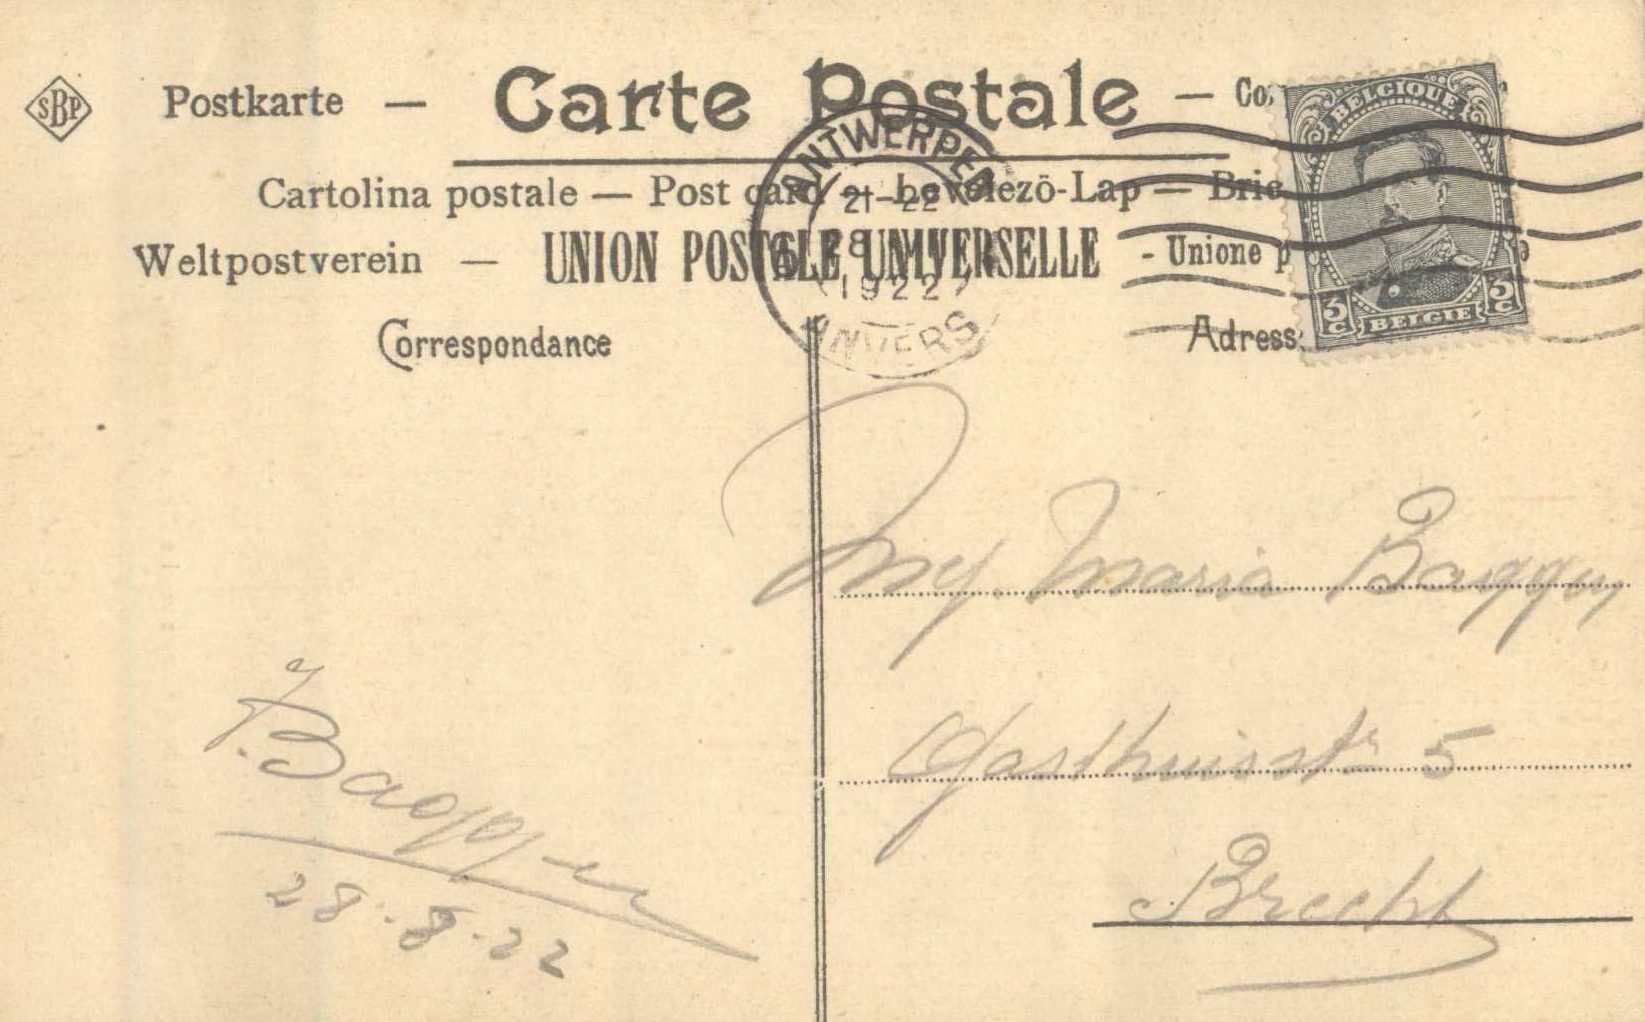 SBP
Postkarte — Carte Postale — Co
Cartolina postale — Post card — Levelezö-Lap — Brie
Weltpostverein — UNION POSTALE UNIVERSELLE - Unione p
Correspondance
Adress
ANTWERPEN
21-22
28
1922
ANVERS
BELGIQUE
3 C BELGIE 3 C
Mej. Maria
Gasthuisstr 5
Brecht
28-8-22